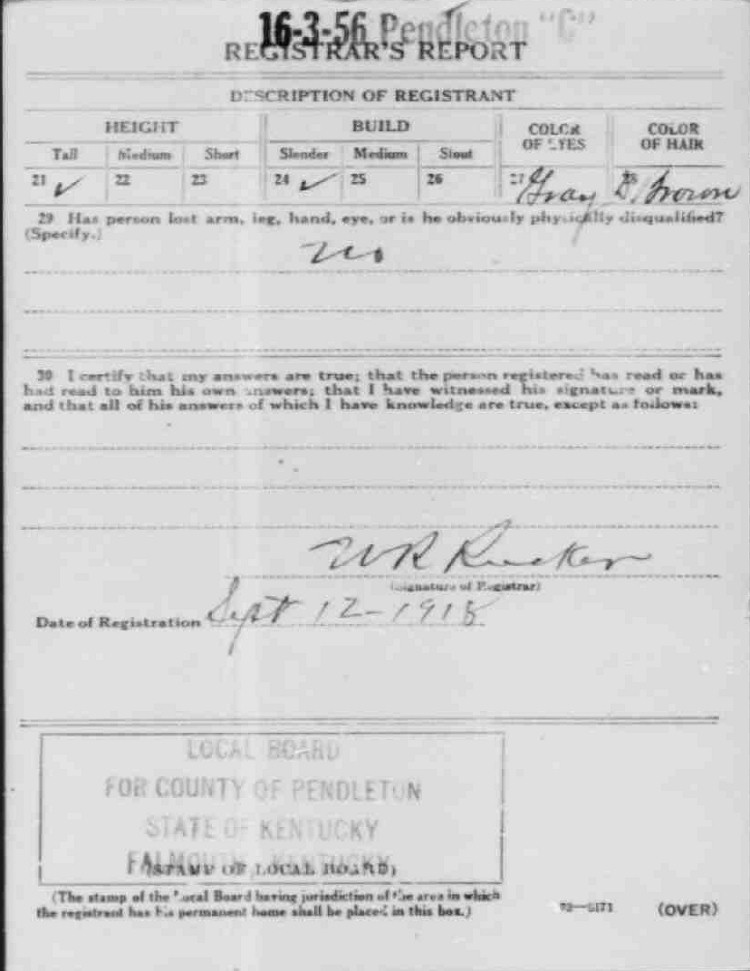 16-3-56 Pendleton "C"
REGISTRAR'S REPORT
DESCRIPTION OF REGISTRANT
HEIGHT BUILD COLOR OF EYES COLOR OF HAIR
Tall Medium Short Slender Medium Stout
21 ✓ 22 23 24 ✓ 25 26 27 Gray 28 D. Brown
29 Has person lost arm, leg, hand, eye, or is he obviously physically disqualified?
(Specify.)
no
30 I certify that my answers are true; that the person registered has read or has
had read to him his own answers; that I have witnessed his signature or mark,
and that all of his answers of which I have knowledge are true, except as follows:
W R Rucker
(Signature of Registrar)
Date of Registration Sept 12-1918
LOCAL BOARD
FOR COUNTY OF PENDLETON
STATE OF KENTUCKY
FALMOUTH, KENTUCKY
(STAMP OF LOCAL BOARD)
(The stamp of the Local Board having jurisdiction of the area in which
the registrant has his permanent home shall be placed in this box.)
(OVER)